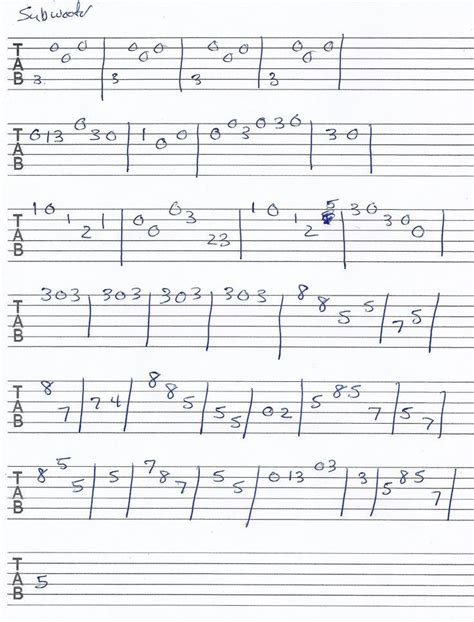 T A B 3. 0 0 0 0 | 3 0 0 0 0 | 3 0 0 0 | 3 0 0 0 0 |
T A B 0 1 3 0 3 0 | 1 0 0 | 0 0 3 0 3 0 | 3 0 |
T A B 1 0 1 2 1 | 0 0 0 3 2 3 | 1 0 1 2 5 | 3 0 3 0 0
T A B 3 0 3 | 3 0 3 | 3 0 3 | 3 0 3 | 8 8 5 5 | 7 5 |
T A B 8 7 | 7 4 | 8 8 5 | 5 5 | 0 2 | 5 8 5 7 | 5 7 |
T A B 8 5 5 | 5 | 7 8 7 | 5 5 | 0 1 3 0 3 | 3 | 5 8 5 7 |
T A B 5